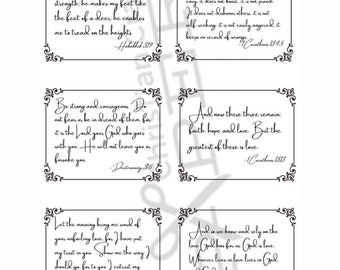 strength; he makes my feet like
the feet of a deer, he enables
me to tread on the heights
Habakkuk 3:19
easy, it does not boast, it is not proud.
It does not dishonor others, it is not
self-seeking, it is not easily angered, it
keeps no record of wrongs.
1 Corinthians 13:4-5
Be strong and courageous. Do
not fear or be in dread of them, for
it is the Lord your God who goes
with you. He will not leave you or
forsake you.
Deuteronomy 31:6
And now these three remain:
faith, hope and love. But the
greatest of these is love.
1 Corinthians 13:13
Let the morning bring me word of
your unfailing love, for I have put
my trust in you. Show me the way I
should go, for to you I entrust my
And so we know and rely on the
love God has for us. God is love.
Whoever lives in love lives in God